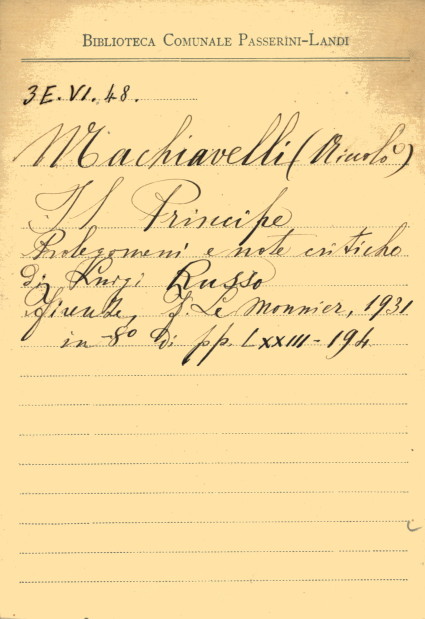 BIBLIOTECA COMUNALE PASSERINI-LANDI
3E.VI.48.
Machiavelli (Nicolò)
Il Principe
Prolegomeni e note critiche
di Luigi Russo
Firenze, F. Le Monnier, 1931
in-8° di pp. LXXIII-194